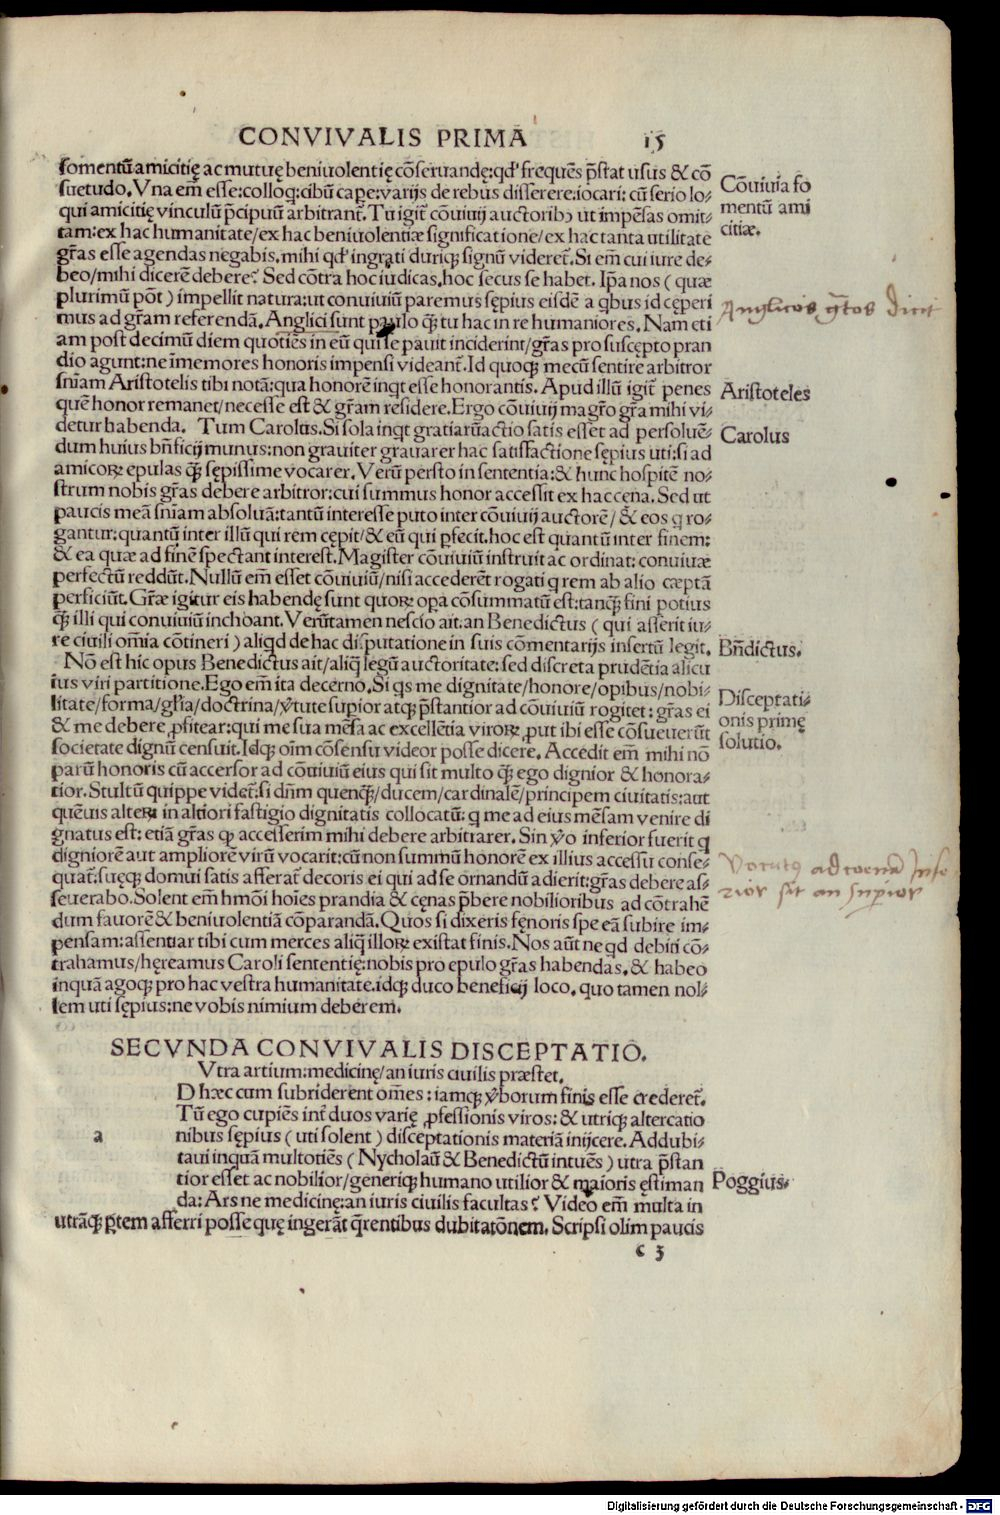 CONVIVALIS PRIMA 15
fomentū amicitię ac mutuę beniuolentię cōseruandę: qđ frequēs p̄stat usus & cō
suetudo. Vna em̄ esse: colloq̨: cibū cap̱e: varijs de rebus disserere. iocari: cū serio lo⸗
qui amicitię vinculū p̄cipuū arbitrant̄. Tu igit̄ cōuiuij auctoribꝰ ut impēsas omit⸗
tam: ex hac humanitate/ex hac beniuolentiæ significatione/ex hac tanta utilitate
gr̄as esse agendas negabis. mihi qđ ingrati duriq̨ signū videret̄. Si em̄ cui iure de⸗
beo/mihi dicerē debere? Sed cōtra hoc iudicas. hoc secus se habet. Ip̄a nos ( quæ
plurimū pōt ) impellit natura: ut conuiuiū paremus sępius eisdē a qbus id cęperi
mus ad gr̄am referendā. Anglici sunt paulo q̄ꝫ tu hac in re humaniores. Nam eti
am post decimū diem quotiēs in eū qui se pauit inciderint/gr̄as pro suscepto pran
dio agunt: ne īmemores honoris impensi videant̄. Id quoq̨ mecū sentire arbitror
sn̄iam Aristotelis tibi notā: qua honorē inqt esse honorantis. Apud illū igit̄ penes
quē honor remanet/necesse est & gr̄am residere. Ergo cōuiuij magr̄o gr̄a mihi vi⸗
detur habenda. Tum Carolus. Si sola inqt gratiarū actio satis esset ad persoluē⸗
dum huius bn̄ficij munus: non grauiter grauarer hac satisfactione sępius uti: si ad
amicoꝝ epulas q̄ꝫ sępissime vocarer. Verū persto in sententia: & hunc hospitē no⸗
strum nobis gr̄as debere arbitror: cui summus honor accessit ex hac cena. Sed ut
paucis meā sn̄iam absoluā: tantū interesse puto inter cōuiuij auctorē/& eos q ro⸗
gantur: quantū inter illū qui rem cępit/& eū qui ꝑfecit. hoc est quantū inter finem:
& ea quæ ad finē spectant interest. Magister cōuiuiū instruit ac ordinat: conuiuæ
perfectū reddūt. Nullū em̄ esset cōuiuiū/nisi accederēt rogati q rem ab alio cæptā
perficiūt. Gr̄æ igitur eis habendę sunt quoꝝ opa cōsummatū est: tanq̄ꝫ fini potius
q̄ꝫ illi qui conuiuiū inchoant. Verūtamen nescio ait: an Benedictus ( qui asserit iu⸗
re ciuili om̄ia cōtineri ) aliqd de hac disputatione in suis cōmentarijs insertū legit.
Nō est hic opus Benedictus ait/aliq̄ legū auctoritate: sed discreta prudētia alicu
ius viri partitione. Ego em̄ ita decerno. Si qs me dignitate/honore/opibus/nobi⸗
litate/forma/gl̄ia/doctrina/v̄tute supior atq̨ p̄stantior ad cōuiuiū rogitet: gr̄as ei
& me debere ꝓfitear: qui me sua mēsa ac excellētia viroꝝ, put ibi esse cōsueuerūt
societate dignū censuit. Idq̨ oīm cōsensu videor posse dicere. Accedit em̄ mihi nō
parū honoris cū accersor ad cōuiuiū eius qui sit multo q̄ꝫ ego dignior & honora⸗
tior. Stultū quippe videt̄: si dn̄m quenq̄ꝫ/ducem/cardinalē/principem ciuitatis: aut
quēuis alteꝝ in altiori fastigio dignitatis collocatū: q me ad eius mēsam venire di
gnatus est: etiā gr̄as qꝫ accesserim mihi debere arbitrarer. Sin v̄o inferior fuerit q
digniorē aut ampliorē virū vocarit: cū non summū honorē ex illius accessu conse⸗
quat̄: suęq̨ domui satis afferat̄ decoris ei qui ad se ornandū adierit: gr̄as debere as⸗
seuerabo. Solent em̄ hmōi hoīes prandia & cęnas p̄bere nobilioribus ad cōtrahē
dum fauorē & beniuolentiā cōparandā. Quos si dixeris fęnoris spe eā subire im⸗
pensam: assentiar tibi cum merces aliq̄ illoꝝ existat finis. Nos aūt ne qd debiti cō⸗
trahamus/hęreamus Caroli sententię: nobis pro epulo gr̄as habendas. & habeo
inquā agoq̨ pro hac vestra humanitate. idq̨ duco beneficij loco. quo tamen nol⸗
lem uti sępius: ne vobis nimium deberem.
Cōuiuia fo
mentū ami
citiæ.
Anglicos gr̄tos dicit
Aristoteles
Carolus
Bn̄dictus.
Disceptati⸗
onis primę
solutio.
Vocatus ad coenā infe
rior sit an superior
SECVNDA CONVIVALIS DISCEPTATIO.
Vtra artium: medicinę/an iuris ciuilis præstet.
a
D hæc cum subriderent om̄es: iamq̨ v̄borum finis esse crederet̄.
Tū ego cupiēs int̄ duos varię ꝓfessionis viros: & utriq̨ altercatio
nibus sępius ( uti solent ) disceptationis materiā inijcere. Addubi⸗
taui inquā multotiēs ( Nycholaū & Benedictū intuēs ) utra p̄stan
tior esset ac nobilior/generiq̨ humano utilior & maioris ęstiman
da: Ars ne medicinę: an iuris ciuilis facultas? Video em̄ multa in
utrāq̨ ꝑtem afferri posse quę ingerāt q̄rentibus dubitatōnem. Scripsi olim paucis
Poggius.
c 3
Digitalisierung gefördert durch die Deutsche Forschungsgemeinschaft - DFG